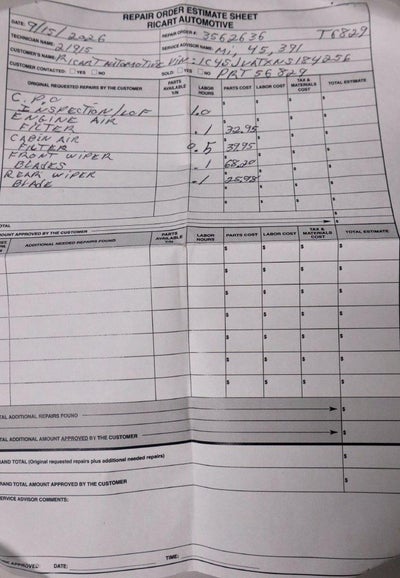 REPAIR ORDER ESTIMATE SHEET
RICART AUTOMOTIVE
DATE: 9/15/2026 REPAIR ORDER #: 3562636 T6829
TECHNICIAN NAME: 21915 SERVICE ADVISOR NAME: Mi, 45,391
CUSTOMER'S NAME: RICART AUTOMOTIVE VIN:
CUSTOMER CONTACTED: YES NO SOLD: YES NO PRT 56829
ORIGINAL REQUESTED REPAIRS BY THE CUSTOMER PARTS AVAILABLE Y/N LABOR HOURS PARTS COST LABOR COST TAX & MATERIALS COST TOTAL ESTIMATE
C.P.O
INSPECTION/LOF 1.0
ENGINE AIR
FILTER .1 32.95
CABIN AIR
FILTER 0.5 39.95
FRONT WIPER
BLADES .1 68.20
REAR WIPER
BLADE .1 25.98
TOTAL $
AMOUNT APPROVED BY THE CUSTOMER
ADDITIONAL NEEDED REPAIRS FOUND PARTS AVAILABLE Y/N LABOR HOURS PARTS COST LABOR COST TAX & MATERIALS COST TOTAL ESTIMATE
$ $ $ $
$ $ $ $
$ $ $ $
$ $ $ $
$ $ $ $
$ $ $ $
$ $ $ $
TOTAL ADDITIONAL REPAIRS FOUND $
TOTAL ADDITIONAL AMOUNT APPROVED BY THE CUSTOMER $
GRAND TOTAL (Original requested repairs plus additional needed repairs) $
GRAND TOTAL AMOUNT APPROVED BY THE CUSTOMER $
SERVICE ADVISOR COMMENTS:
APPROVED: DATE: TIME: